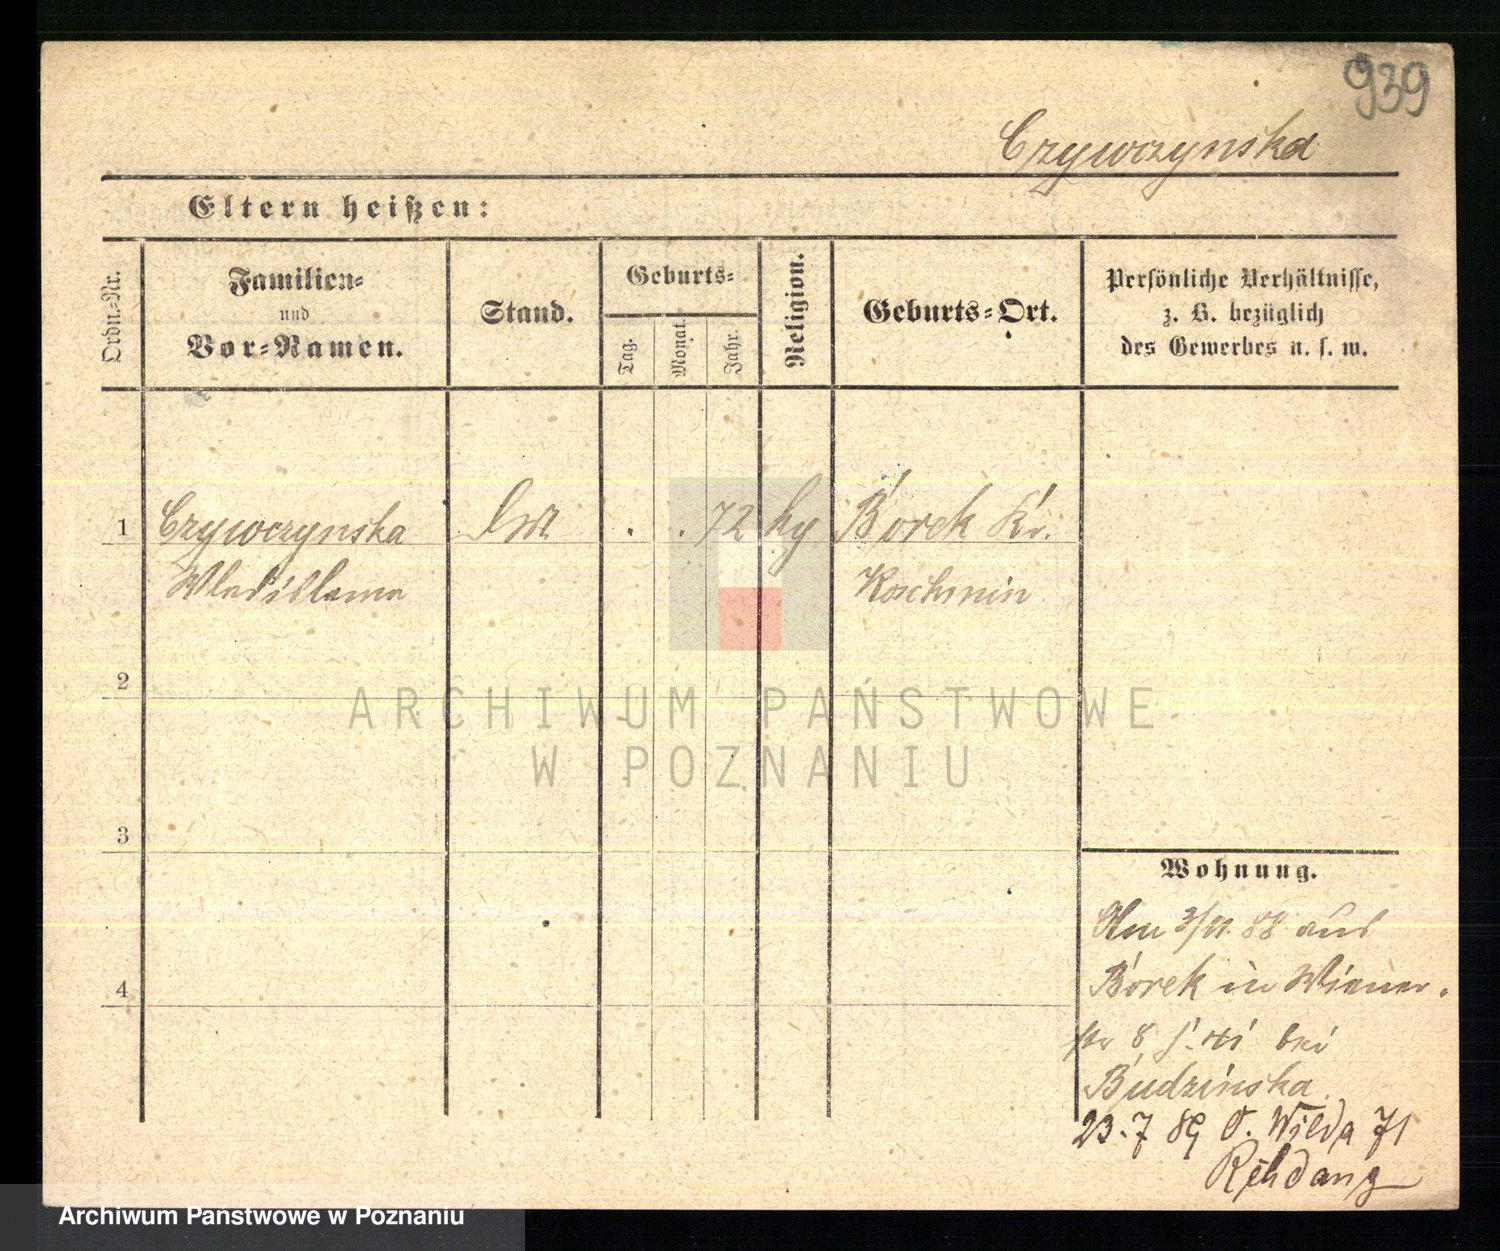 939
Czywczynska
Eltern heißen:
Ordn.-Nr.
Familien-
und
Vor-Namen.
Stand.
Geburts-
Tag.
Monat.
Jahr.
Religion.
Geburts-Ort.
Persönliche Verhältnisse,
z. B. bezüglich
des Gewerbes u. s. w.
1 Czywczynska . . 72 Borek Kr.
Wladislawa Koschmin
2
ARCHIWUM PAŃSTWOWE
W POZNANIU
3
4
Wohnung.
3/11. 88 aus
Borek in Wiener-
str 8 bei
Budzinska.
23.7 89 O. Wilda 71
Rehdanz
Archiwum Państwowe w Poznaniu